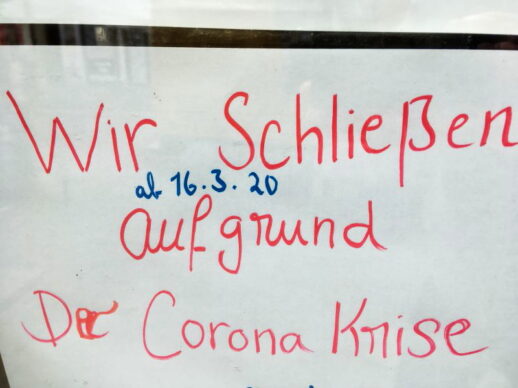 Wir Schließen
ab 16.3.20
aufgrund
Der Corona Krise